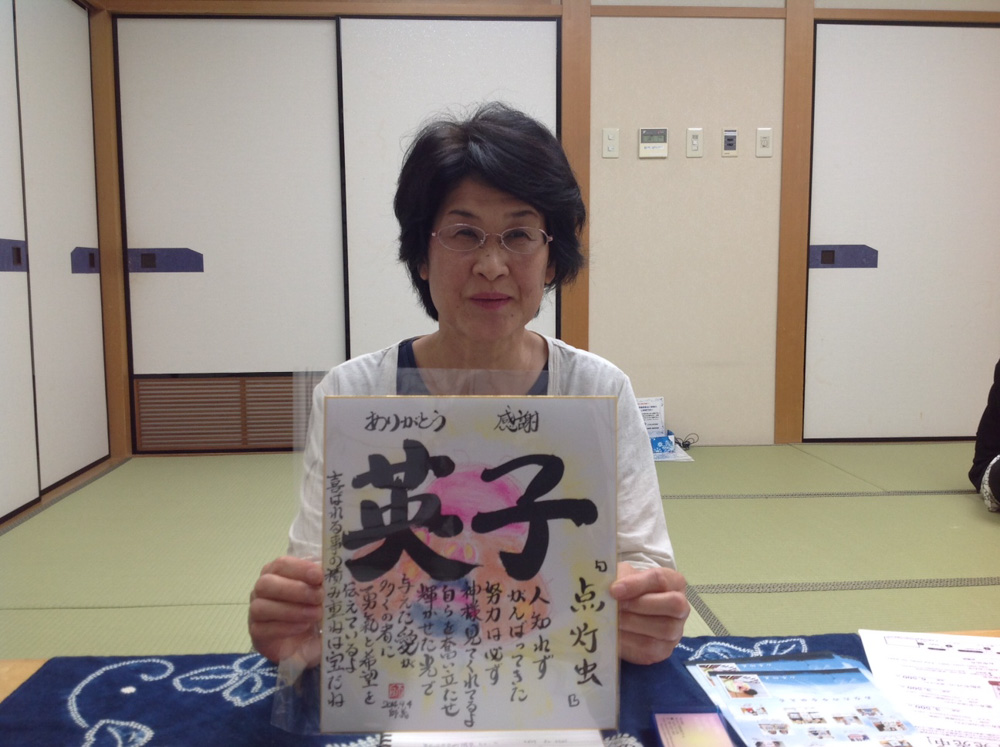 ありがとう 感謝
英子
「点灯虫」
人知れず
がんばってきた
努力は必ず
神様見てくれてるよ
自らを奮い立たせ
輝かせた光で
与えた愛が
多くの者に
勇気と希望を
伝えているよ
喜ばれる事の積み重ねは宝だね